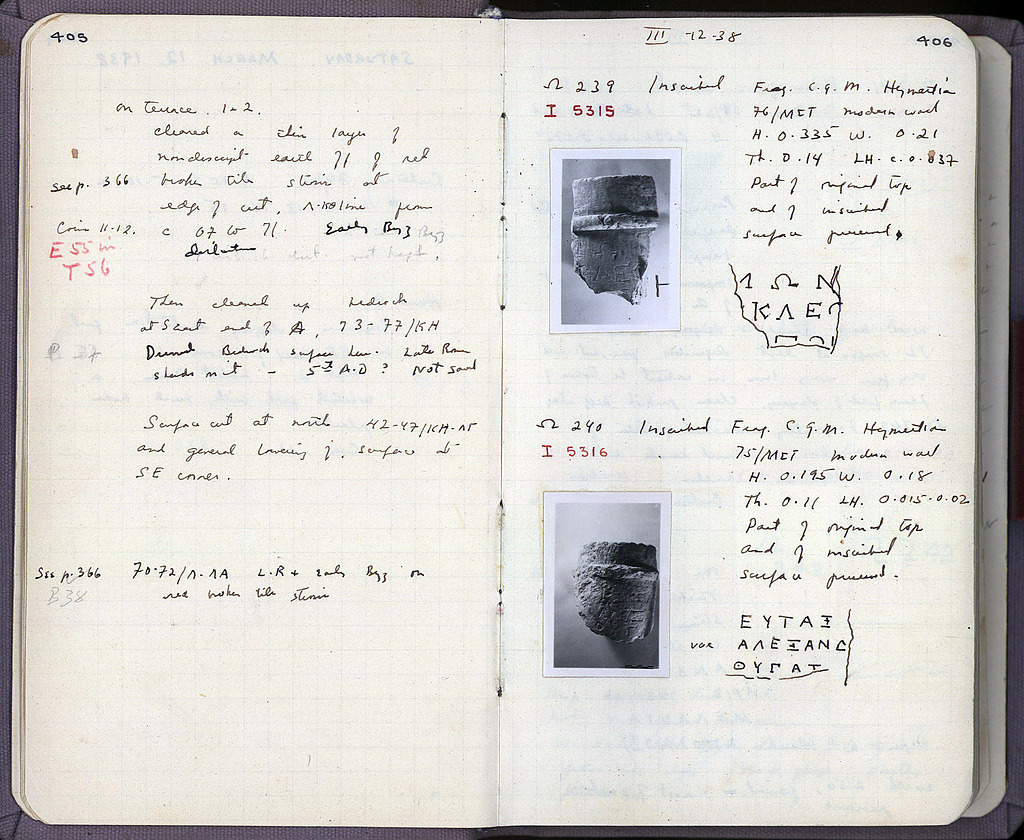 405
on terrace. 1+2.
cleared a thin layer of
nondescript earth 71 of red
see p. 366 broken tile strosis at
edge of cut, line from
Coin 11-12. c 07 to 71. Early Byz Byz
E 55 in
T 56
not kept.
Then cleaned up bedrock
at S East end of A, 73-77/KH
B 37
Bedrock surface Late Rom
sherds in it - 5th A.D? Not saved
Surface cut at north 42-47/KH-
and general lowering of surface at
SE corner.
See p. 366 70-72/Λ-ΛΑ L.R + Early Byz on
B38 red broken tile strosis
III -12-38
406
Ω 239 Inscribed Frag. C.g.M. Hymettian
I 5315 76/ΜΣΤ modern wall
H. 0.335 W. 0.21
Th. 0.14 LH. c. 0.037
Part of original top
and of inscribed
surface preserved.
Ω Ν
ΚΛΕ
Ω 240 Inscribed Frag. C.G.M. Hymettian
I 5316 75/ΜΣΤ modern wall
H. 0.195 W. 0.18
Th. 0.11 LH. 0.015-0.02
Part of original top
and of inscribed
surface preserved.
ΕΥΤΑΞ
vac ΑΛΕΞΑΝ
ΘΥΓΑΤ